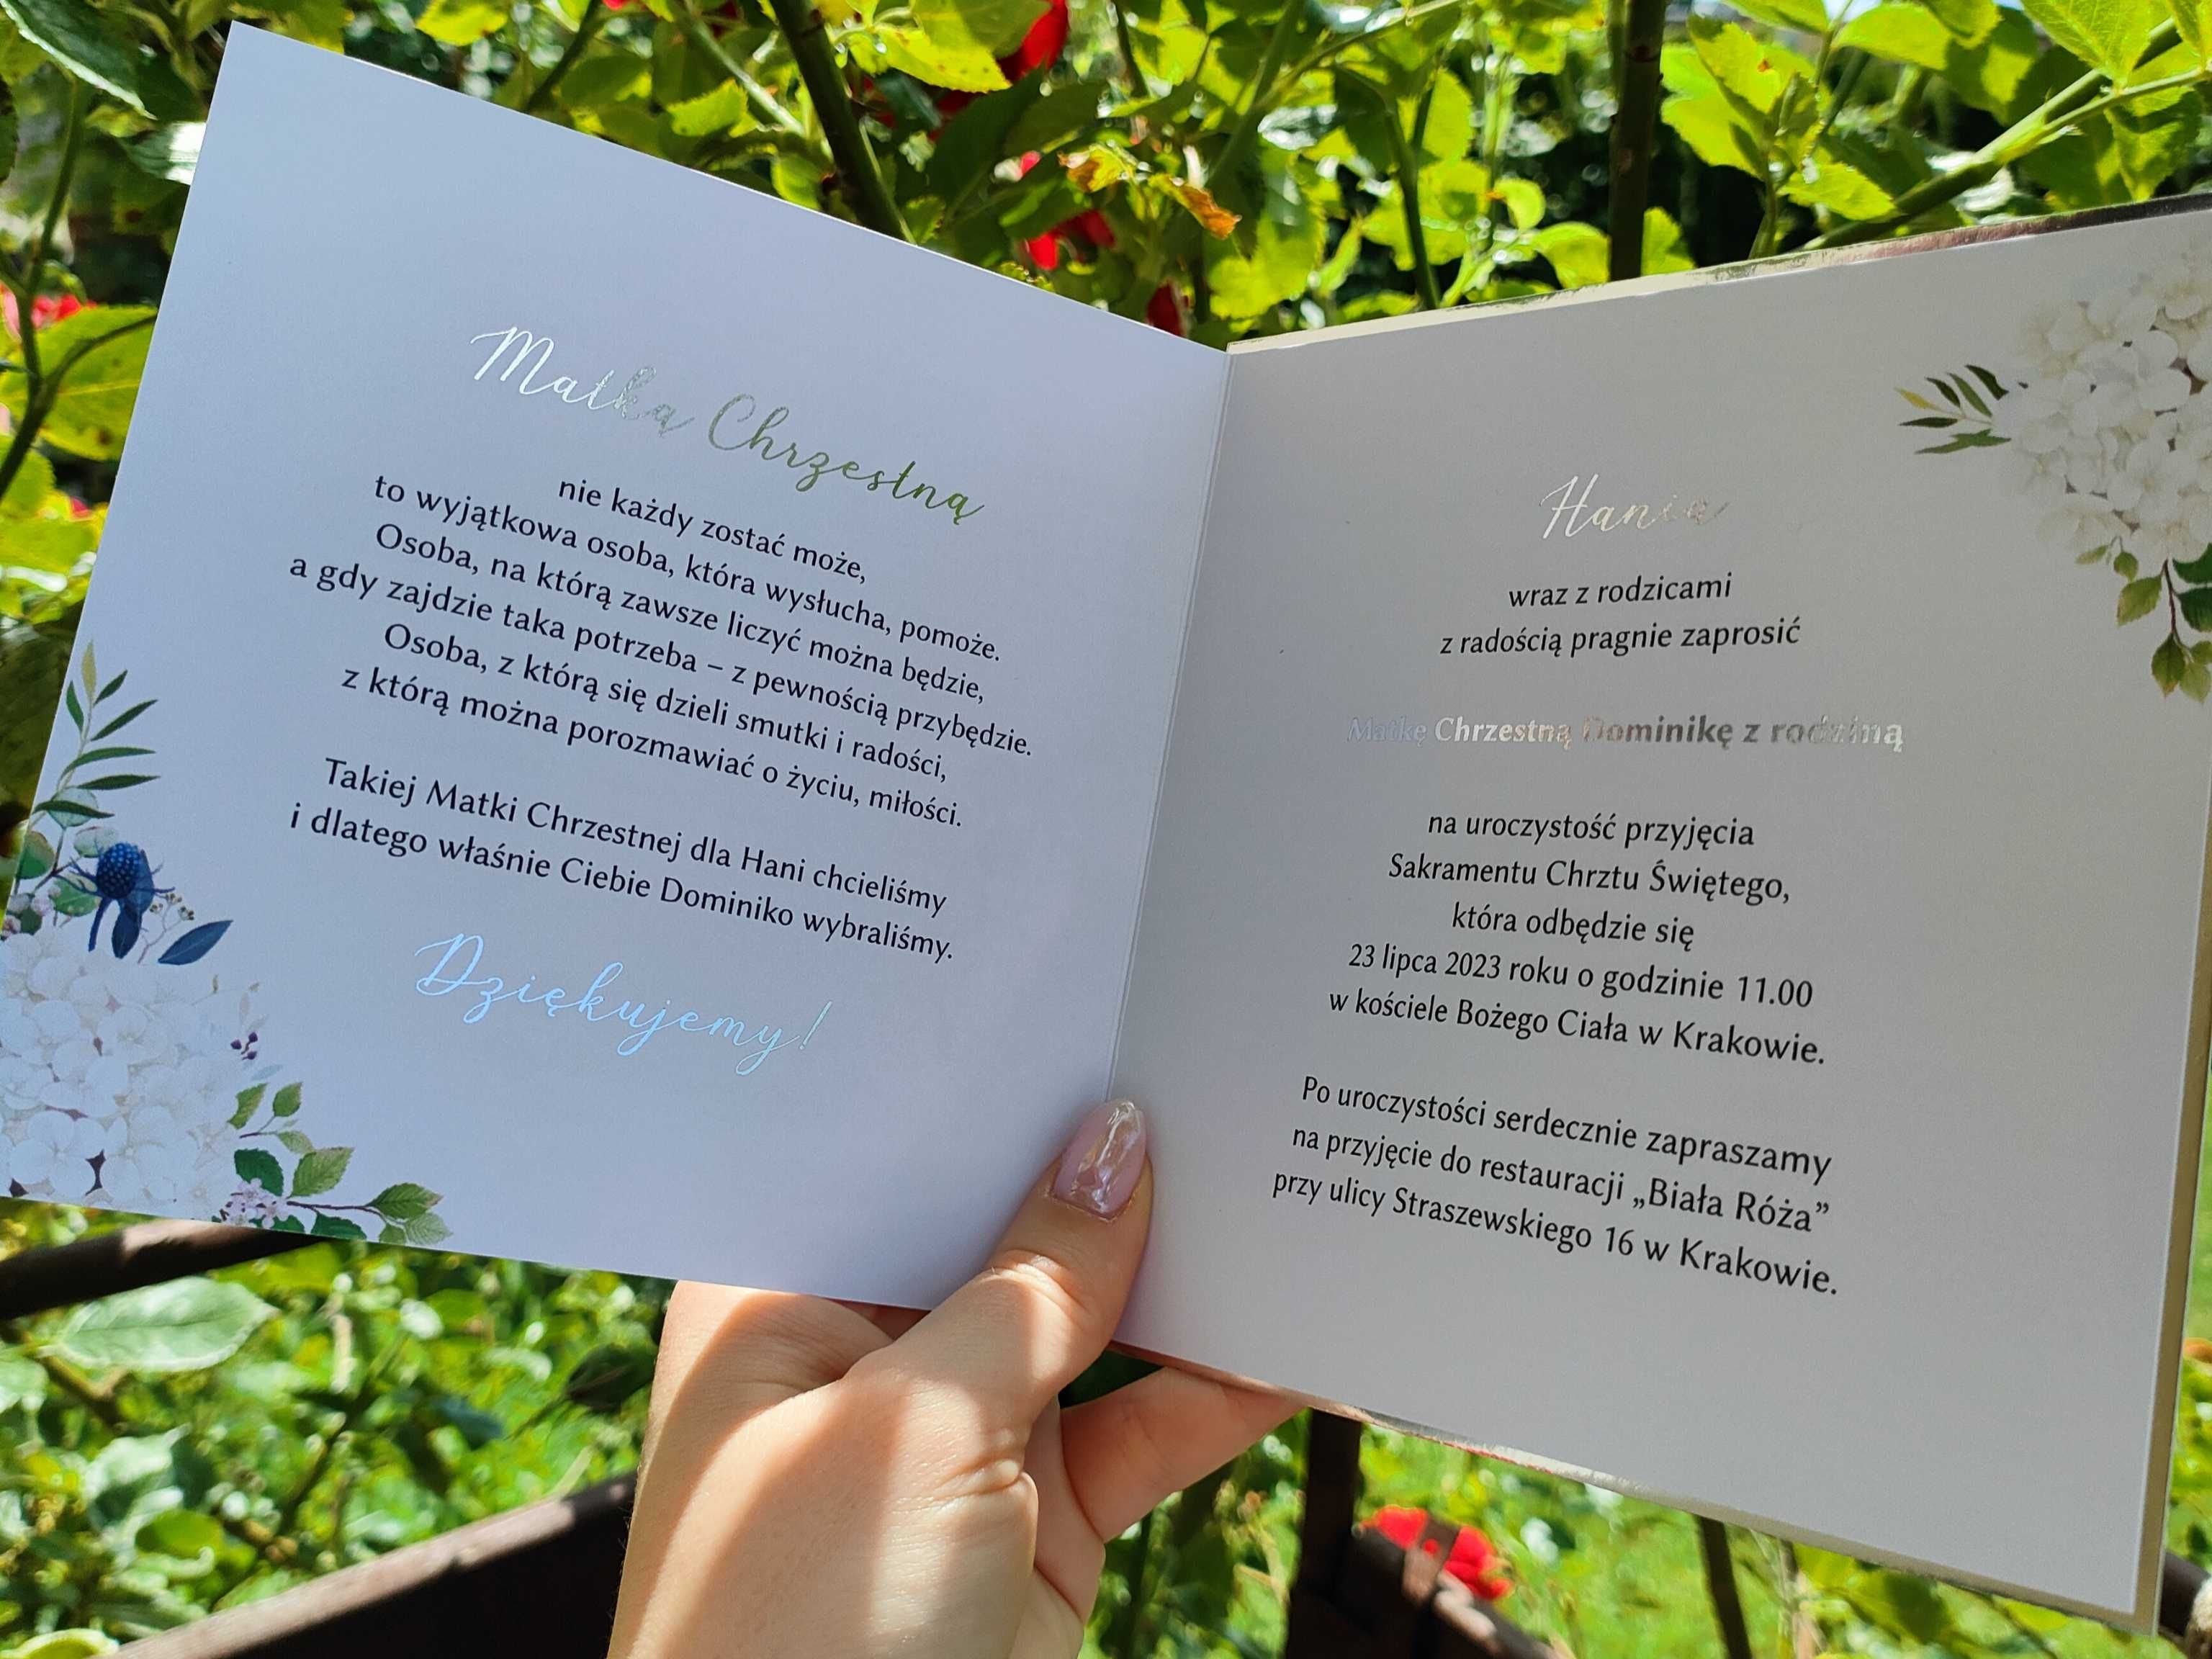 Matką Chrzestną
nie każdy zostać może,
to wyjątkowa osoba, która wysłucha, pomoże.
Osoba, na którą zawsze liczyć można będzie,
a gdy zajdzie taka potrzeba – z pewnością przybędzie.
Osoba, z którą się dzieli smutki i radości,
z którą można porozmawiać o życiu, miłości.
Takiej Matki Chrzestnej dla Hani chcieliśmy
i dlatego właśnie Ciebie Dominiko wybraliśmy.
Dziękujemy!
Hania
wraz z rodzicami
z radością pragnie zaprosić
Matkę Chrzestną Dominikę z rodziną
na uroczystość przyjęcia
Sakramentu Chrztu Świętego,
która odbędzie się
23 lipca 2023 roku o godzinie 11.00
w kościele Bożego Ciała w Krakowie.
Po uroczystości serdecznie zapraszamy
na przyjęcie do restauracji „Biała Róża”
przy ulicy Straszewskiego 16 w Krakowie.